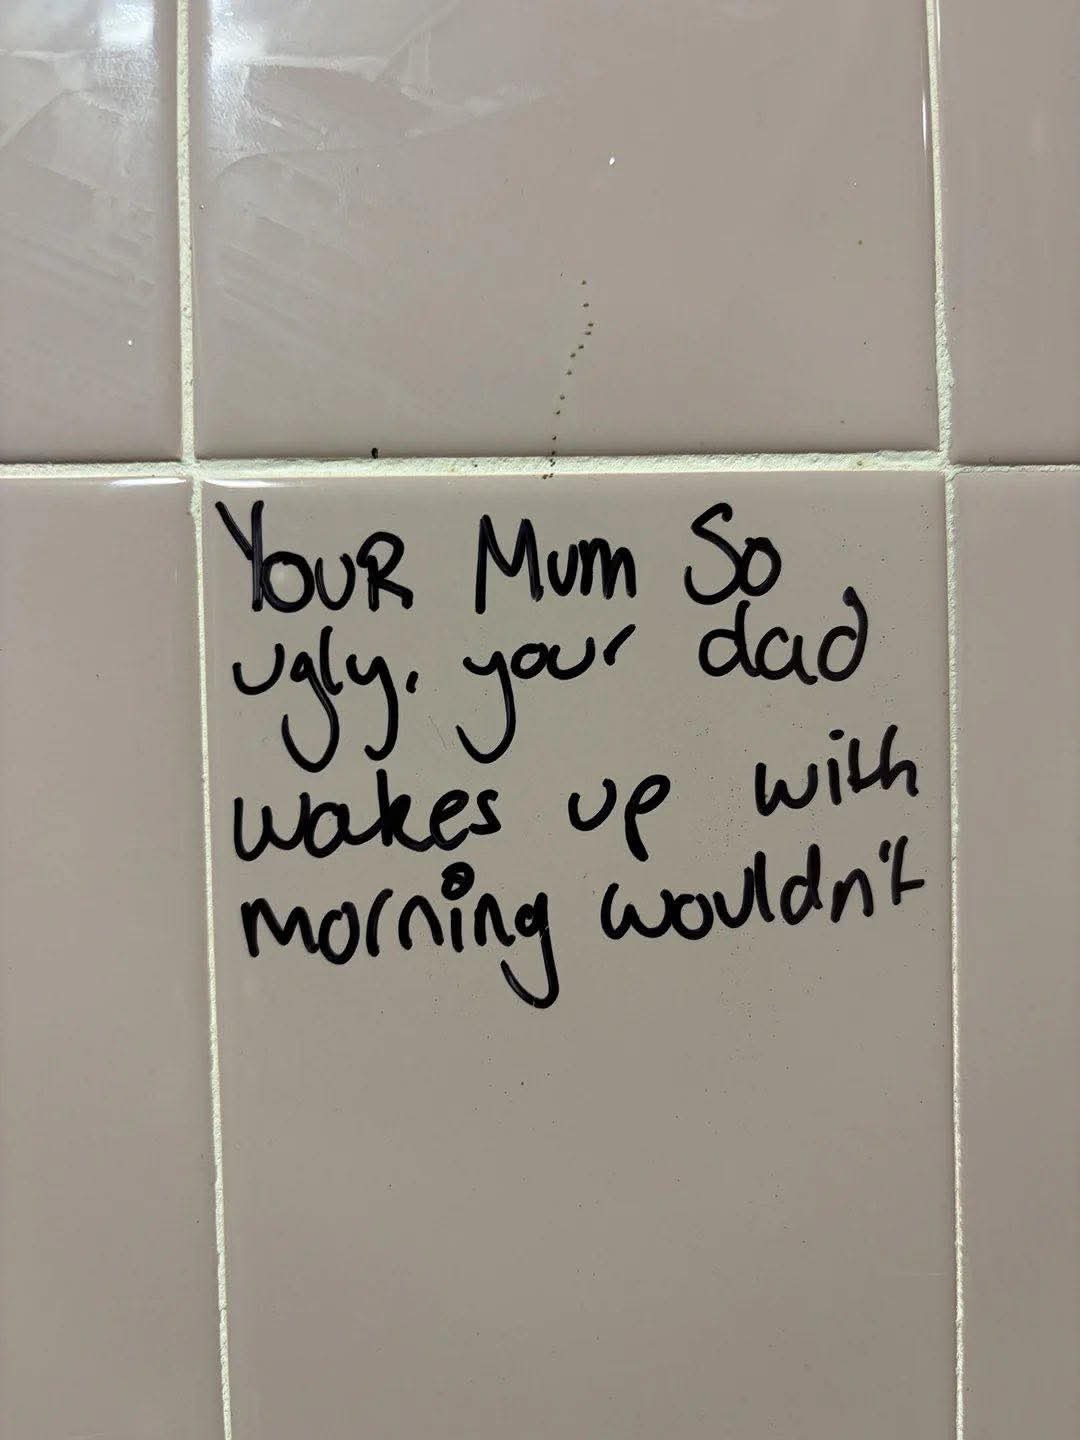 YOUR MUm So
ugly, your dad
wakes up with
morning wouldn't